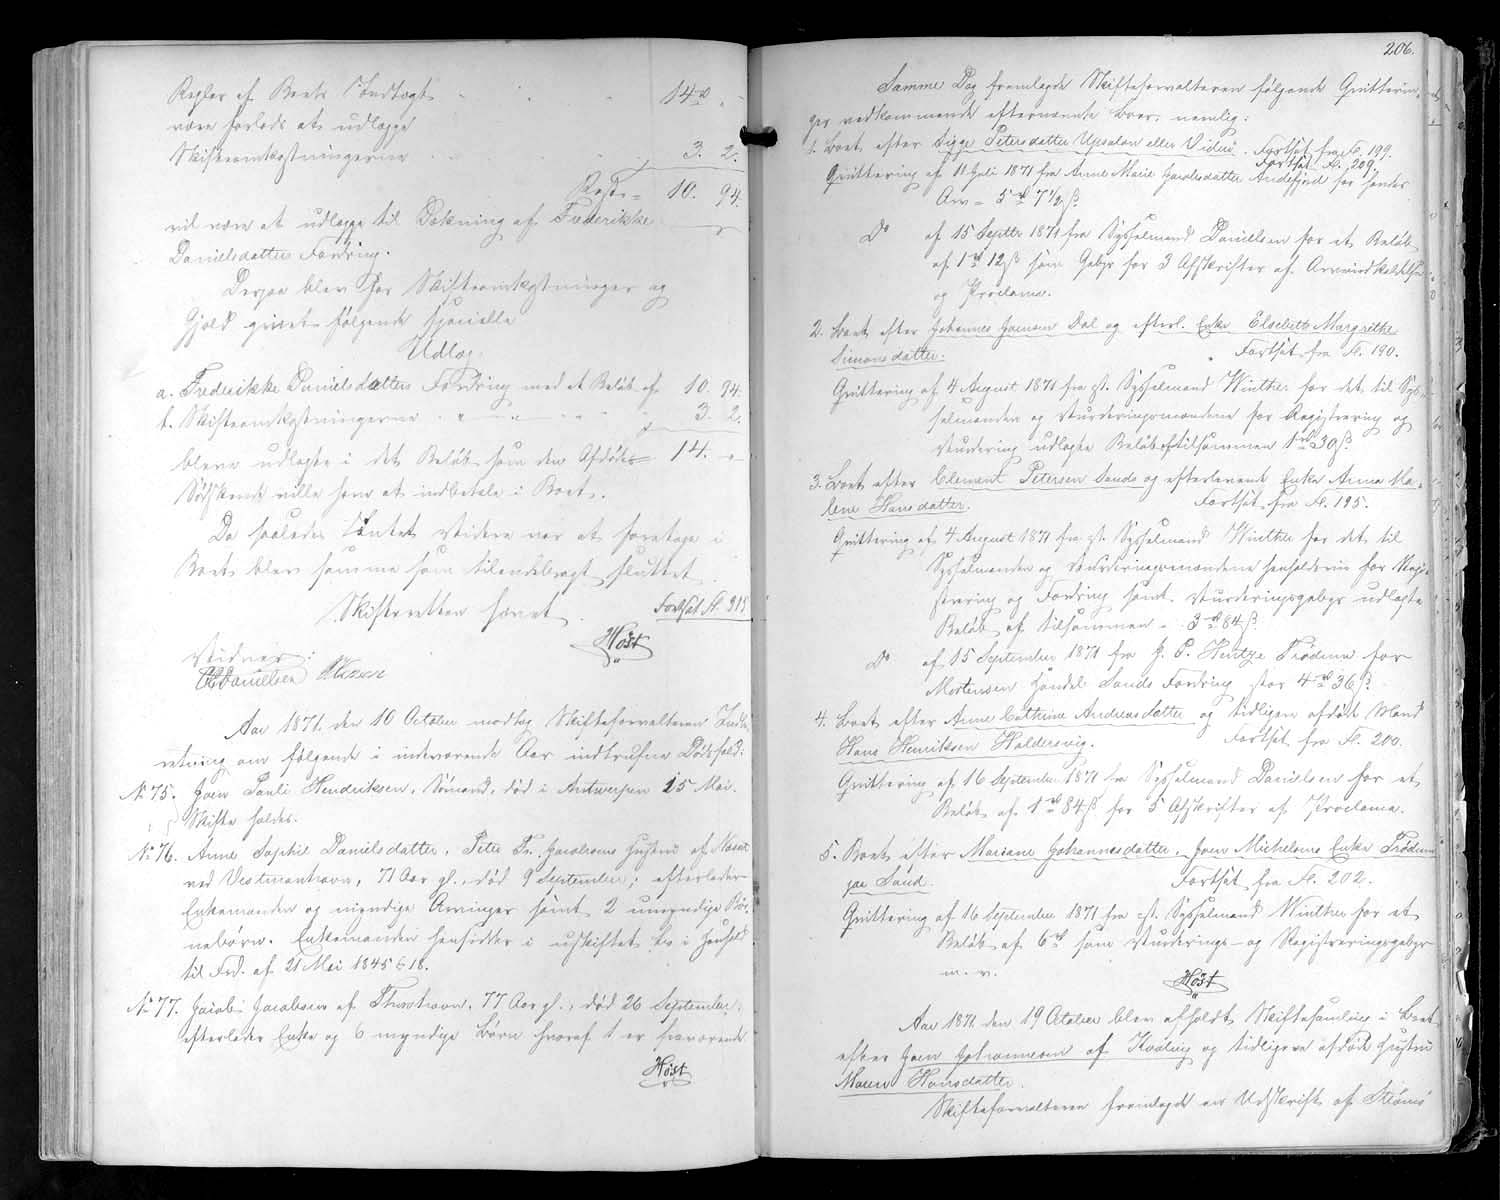 Regler af Boets Indtægt 14 rd " -
være forlods at udlægge
Skifteomkostningerne 3. 2.
Rest = 10. 94.
vil være at udlægge til Dækning af Frederikke
Danielsdatters Fordring.
Derpaa blev for Skifteomkostninger og
Gjæld givet følgende specielle
Udlæg.
a. Frederikke Danielsdatters Fordring med et Beløb af 10. 94.
b. Skifteomkostningerne 3. 2.
bleve udlagte i det Beløb som den Afdødes = 14. "-
Sødskende ville have at indbetale i Boet.
Da saaledes Intet Videre var at foretage i
Boet blev samme som tilendebragt sluttet.
Skifteretten hævet. Fortsat Fl. 215
Høst
Vidner:
Danielsen
Aar 1871 den 10 October modtog Skifteforvalteren Indbe-
retning om følgende i indeværende Aar indtrufne Dødsfald:
No 75. Joen Pauli Hendriksen, Sømand, død i Antwerpen 25 Mai.
Skifte holdes.
No 76. Anne Sophie Danielsdatter, Peter Fr. Jacobsens Hustru af
ved Vestmanhavn, 71 Aar gl., død 9 September; efterlader
Enkemanden og myndige Arvinger samt 2 umyndige Bør-
nebørn. Enkemanden hensidder i uskiftet Bo i Henhold
til Frd. af 21 Mai 1845 § 18.
No 77. Jacob Jacobsen af Thorshavn, 77 Aar gl., død 26 September,
efterlader Enke og 6 myndige Børn hvoraf 1 er fraværende.
Høst
206.
Samme Dag fremlagde Skifteforvalteren følgende Qvitterin-
ger vedkommende efternævnte Boer, nemlig:
1. Boet efter Sigge Petersdatter Upsalon eller Viderö. Fortsat fra Fl. 199.
Fortsat Fl. 209
Qvittering af 11 Juli 1871 fra Anne Marie Jacobsdatter Andefjord for hendes
Arv = 5 rd 7 1/2 ß
Do af 15 Septbr 1871 fra Sysselmand Danielsen for et Beløb
af 1 rd 12 ß som Gebyr for 3 Afskrifter af Arveindkaldelse
og Proclama.
2. Boet efter Johannes Joensen Dal og efterl. Enke Elsebeth Margrethe
Simonsdatter. Fortsat fra Fl. 190.
Qvittering af 4 August 1871 fra cst. Sysselmand Winther for det til Sys-
selmanden og Vurderingsmændene for Registrering og
Vurdering udlagte Beløb af tilsammen 1 rd 30 ß
3. Boet efter Clement Petersen Sands og efterlevende Enke Anna Ma-
lene Hansdatter. Fortsat fra Fl. 195.
Qvittering af 4 August 1871 fra cst. Sysselmand Winther for det til
Sysselmanden og Vurderingsmændene henholdsvis for Regi-
strering og Fordring samt Vurderingsgebyr udlagte
Beløb af tilsammen = 3 rd 84 ß
Do af 15 September 1871 fra J. P. Hentze Trødum for
Mortensen Handel Sands Fordring stor 4 rd 36 ß
4. Boet efter Anne Cathrine Andreasdatter og tidligere afdøde Mand
Hans Henriksen Haldersvig. Fortsat fra Fl. 200.
Qvittering af 16 September 1871 fra Sysselmand Danielsen for et
Beløb af 1 rd 84 ß for 5 Afskrifter af Proclama.
5. Boet efter Mariane Johannesdatter, Joen Michelsens Enke Trødum
paa Sand. Fortsat fra Fl. 202.
Qvittering af 16 September 1871 fra cst. Sysselmand Winther for et
Beløb af 6 rd som Vurderings- og Registreringsgebyr
m. v.
Høst
Aar 1871 den 19 October blev afholdt Skiftesamling i Boet
efter Joen Johannesen af Kvalvig og tidligere afdøde Hustru
Maren Hansdatter.
Skifteforvalteren fremlagde en Udskrift af Strømø